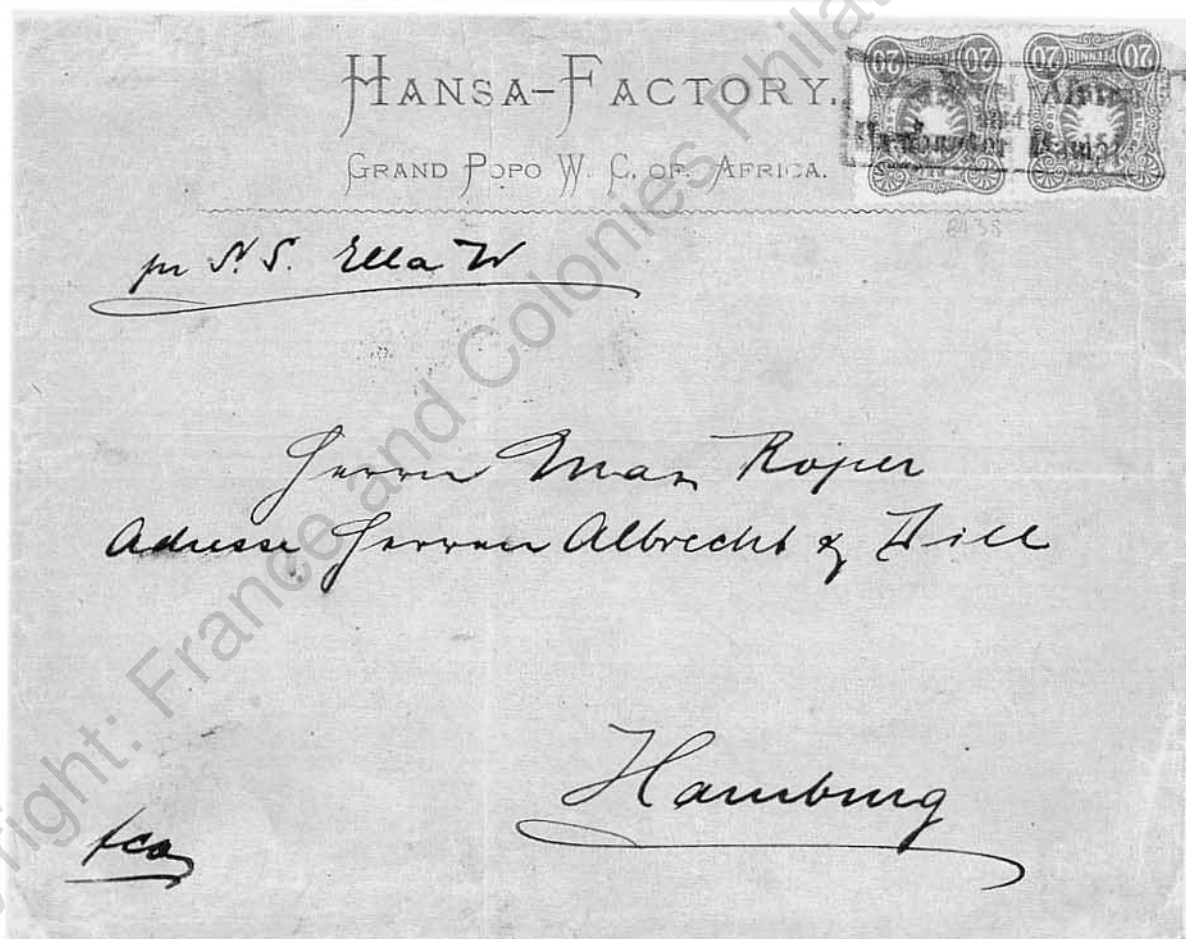 HANSA-FACTORY.
GRAND POPO W. C. OF. AFRICA.
20 20 20 20
PFENNIG
pr S. S. Ella W
8438
Herrn Max Röper
Adresse Herren Albrecht & Dill
Hamburg
fco
Copyright: France and Colonies Philat